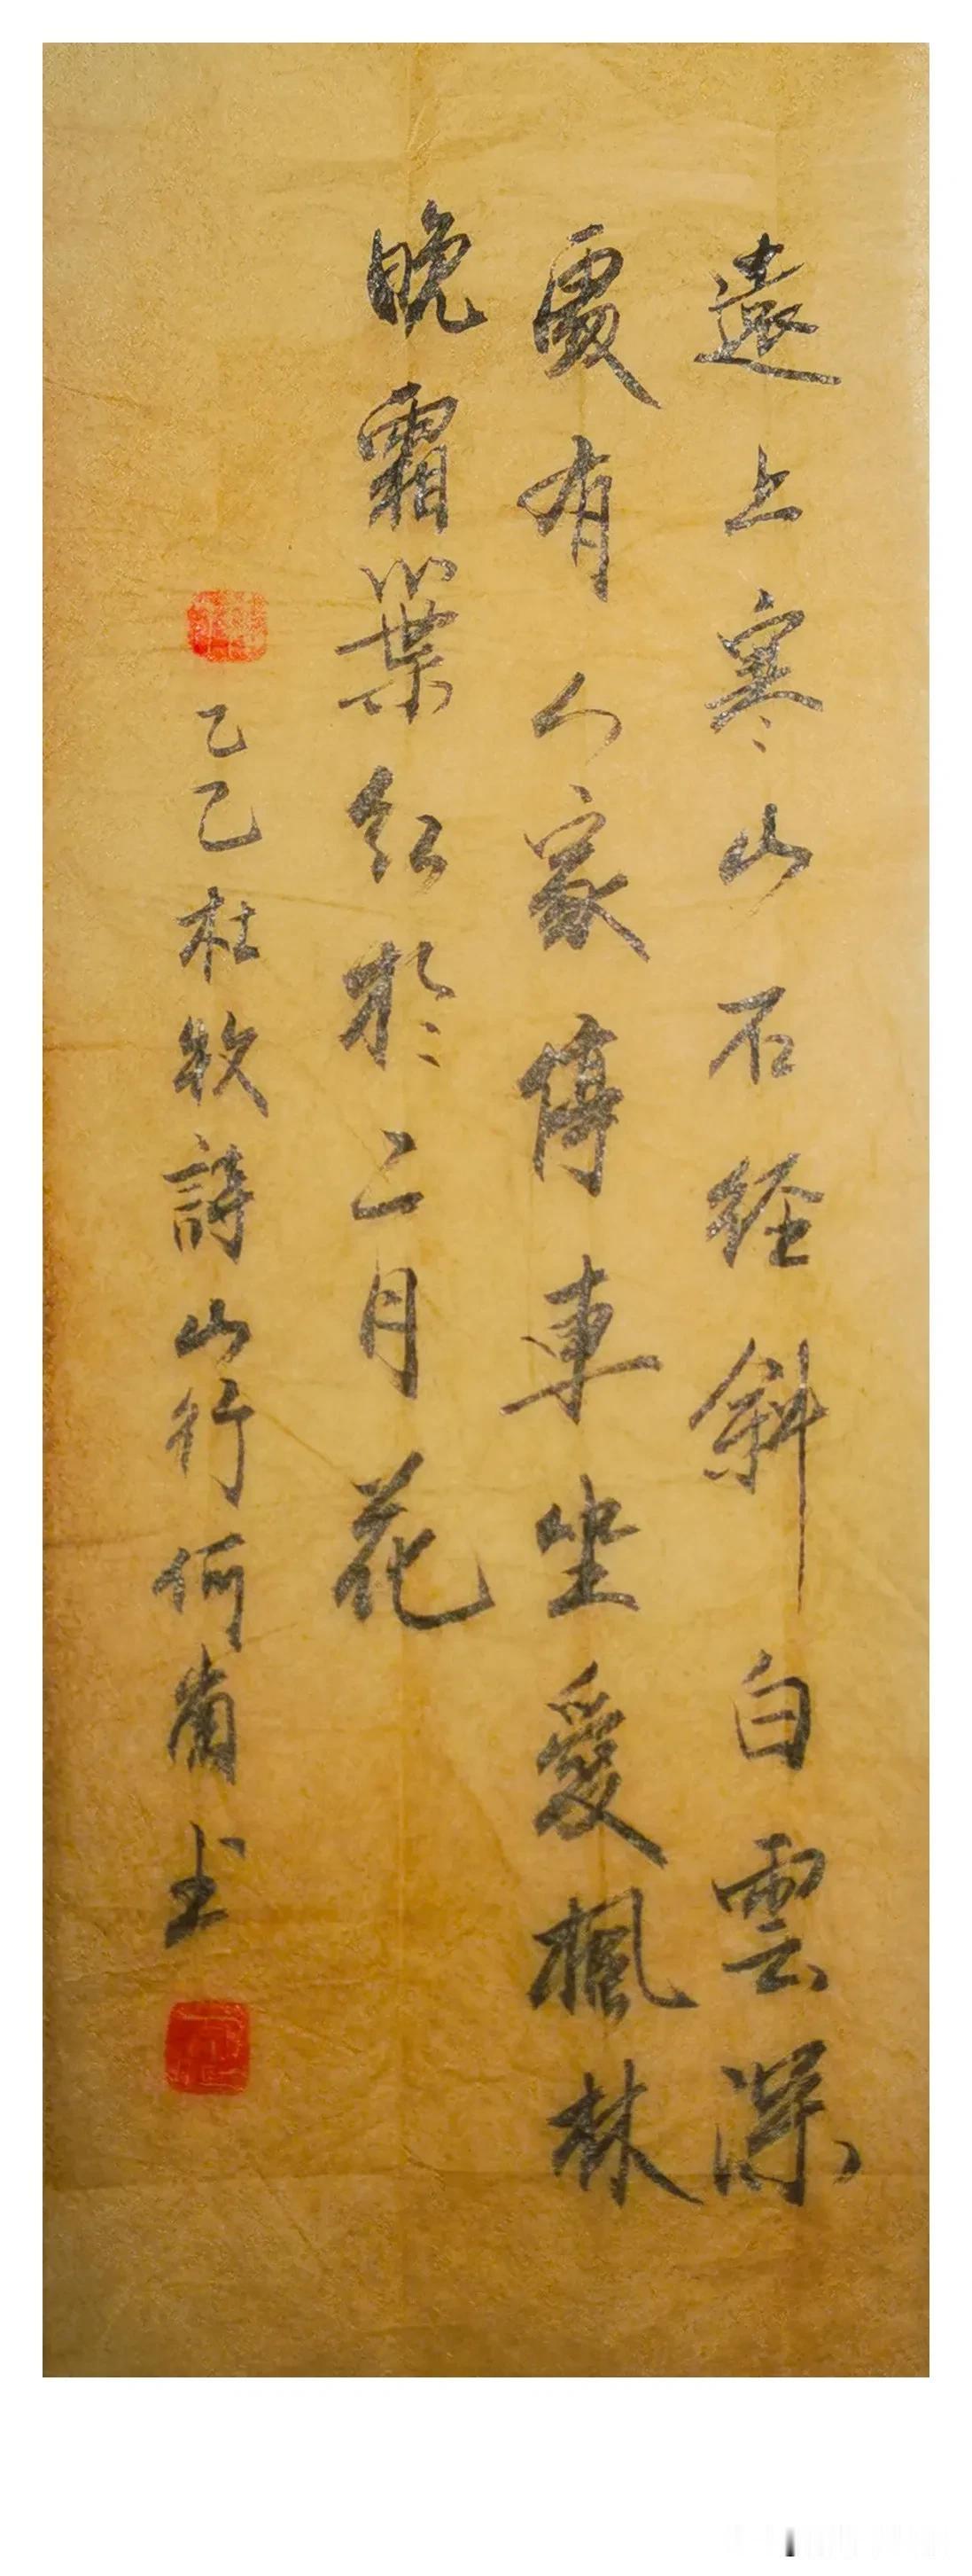 遠上寒山石径斜白雲深
處有人家停車坐愛楓林
晚霜葉紅於二月花
乙巳杜牧詩山行何